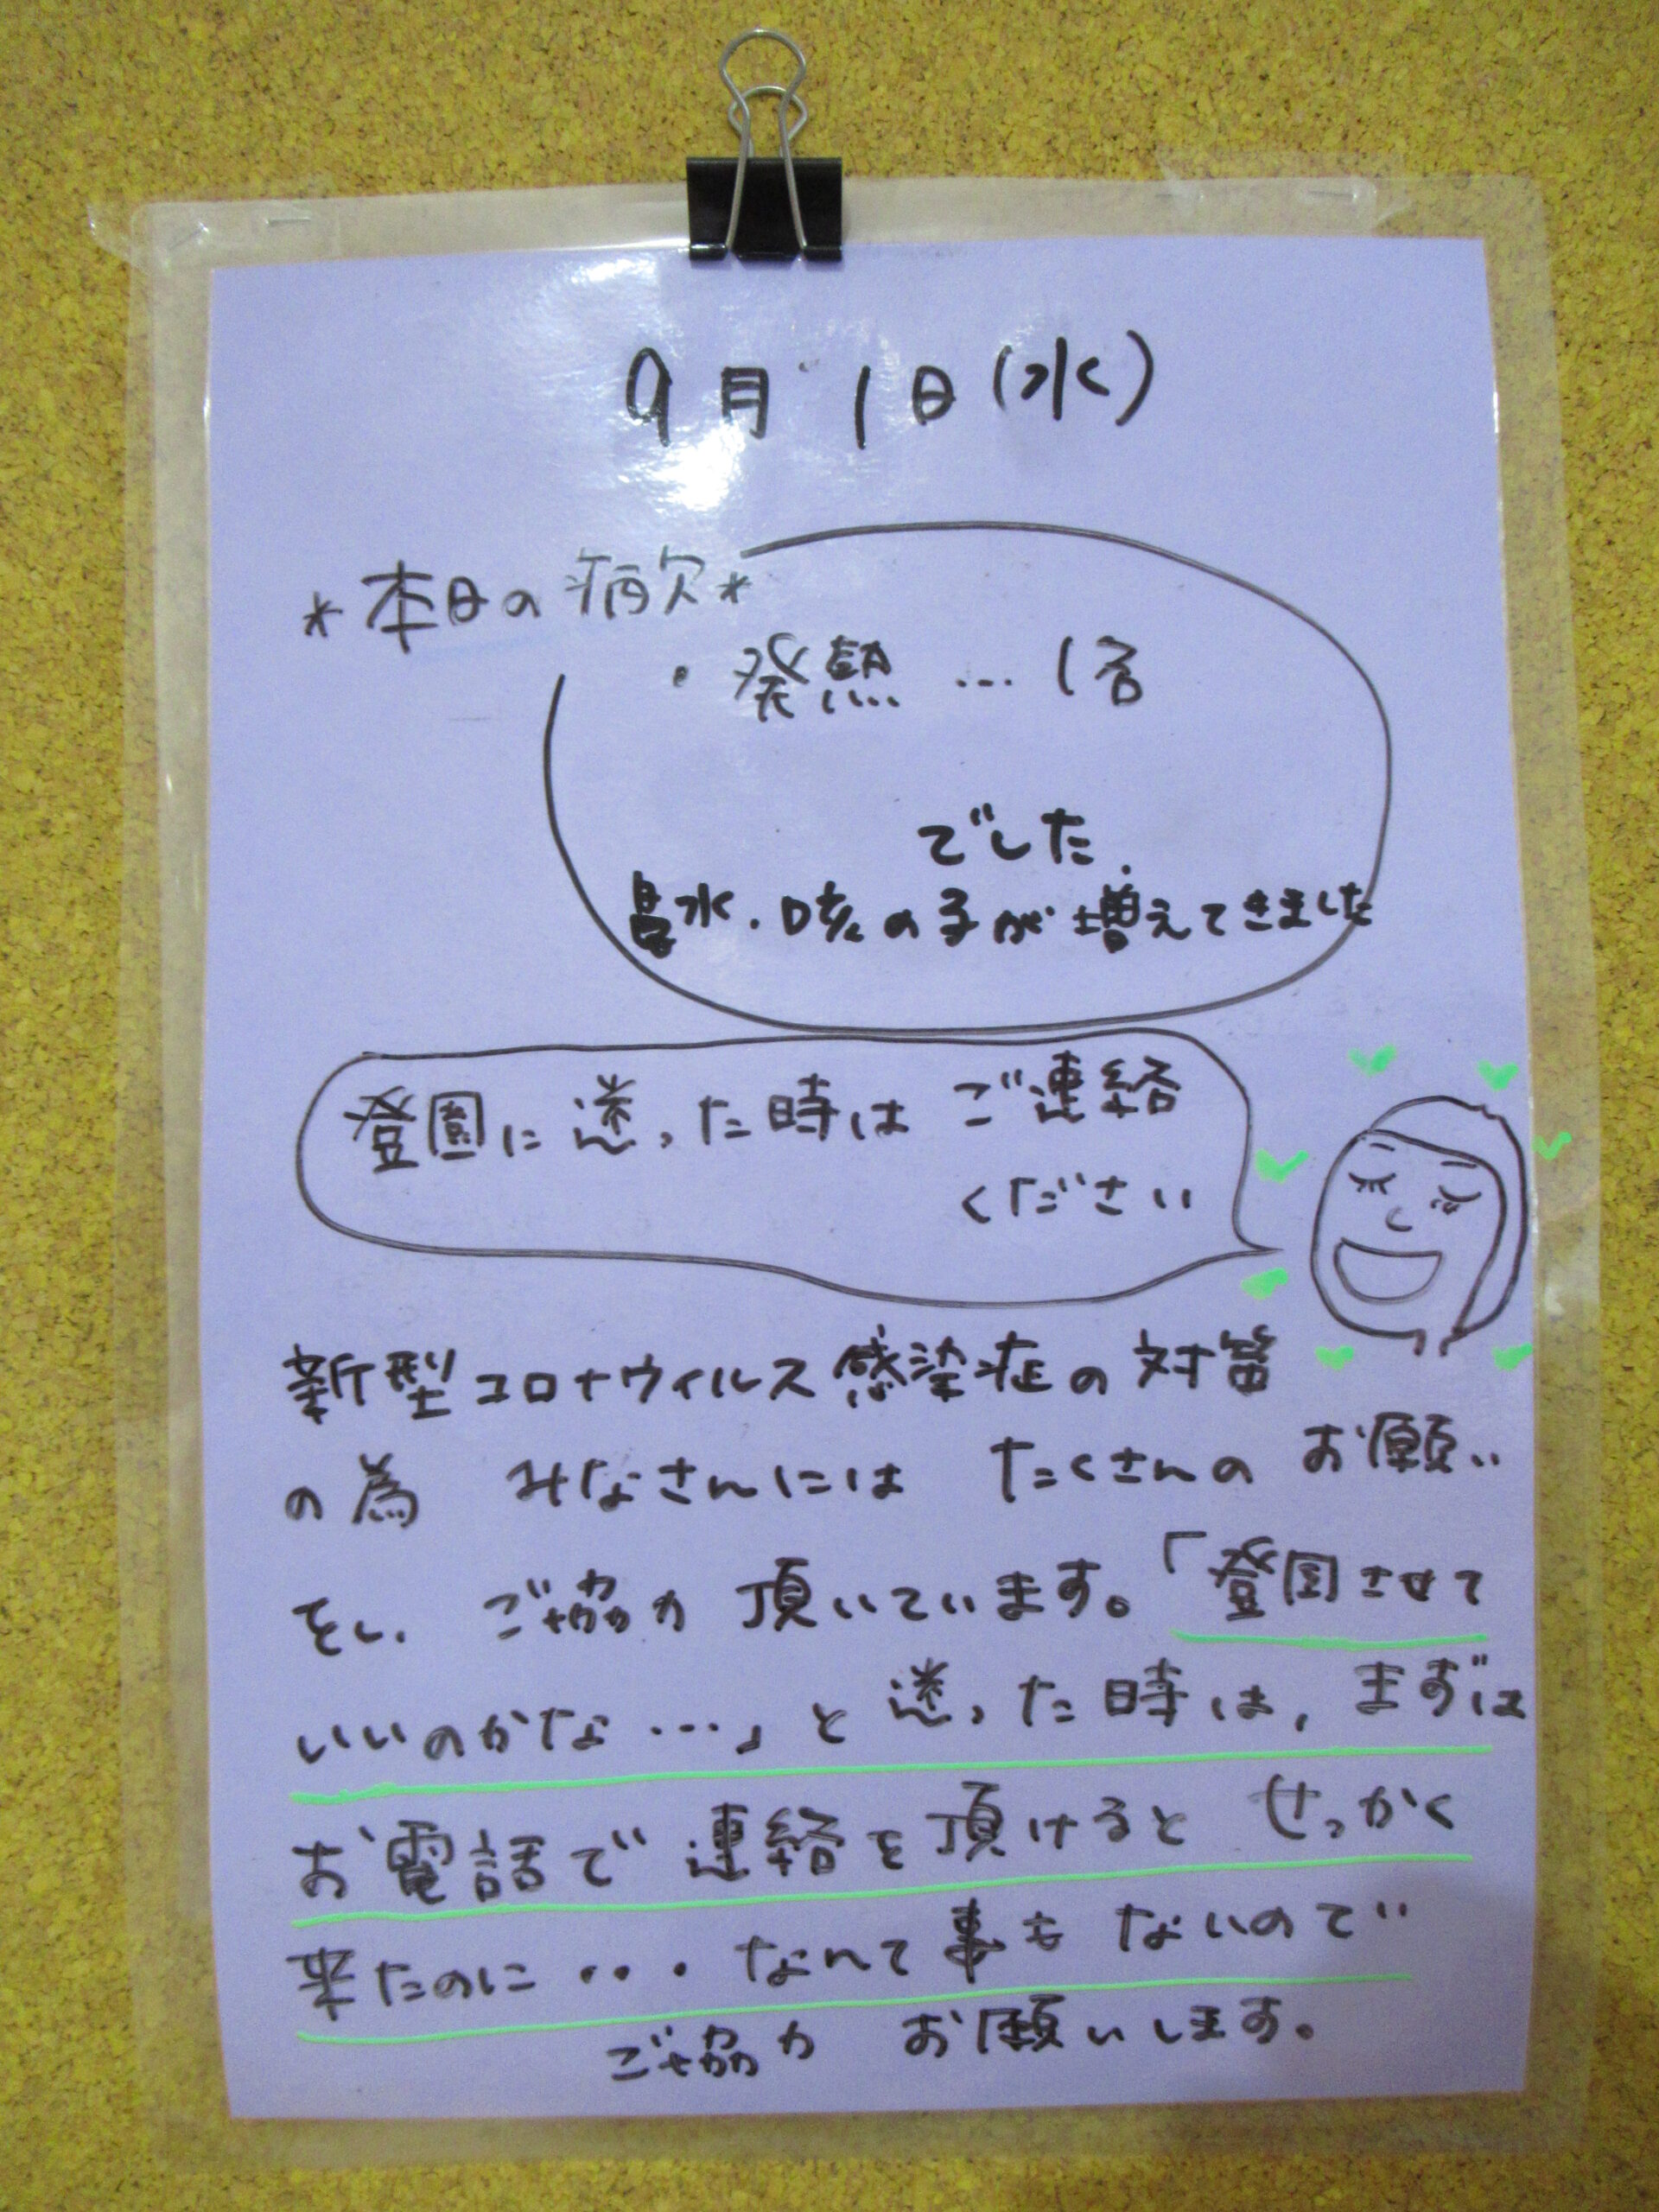 9月1日(水)
*本日の病欠*
・発熱 … 1名
でした.
鼻水・咳の子が増えてきました
登園に迷った時は ご連絡
ください
新型コロナウィルス感染症の対策
の為 みなさんには たくさんの お願い
をし、 ご協力 頂いています。「登園させて
いいのかな…」と 迷った時は, まずは
お電話で 連絡を頂けると せっかく
来たのに・・・なんて事も ないので
ご協力 お願いします。